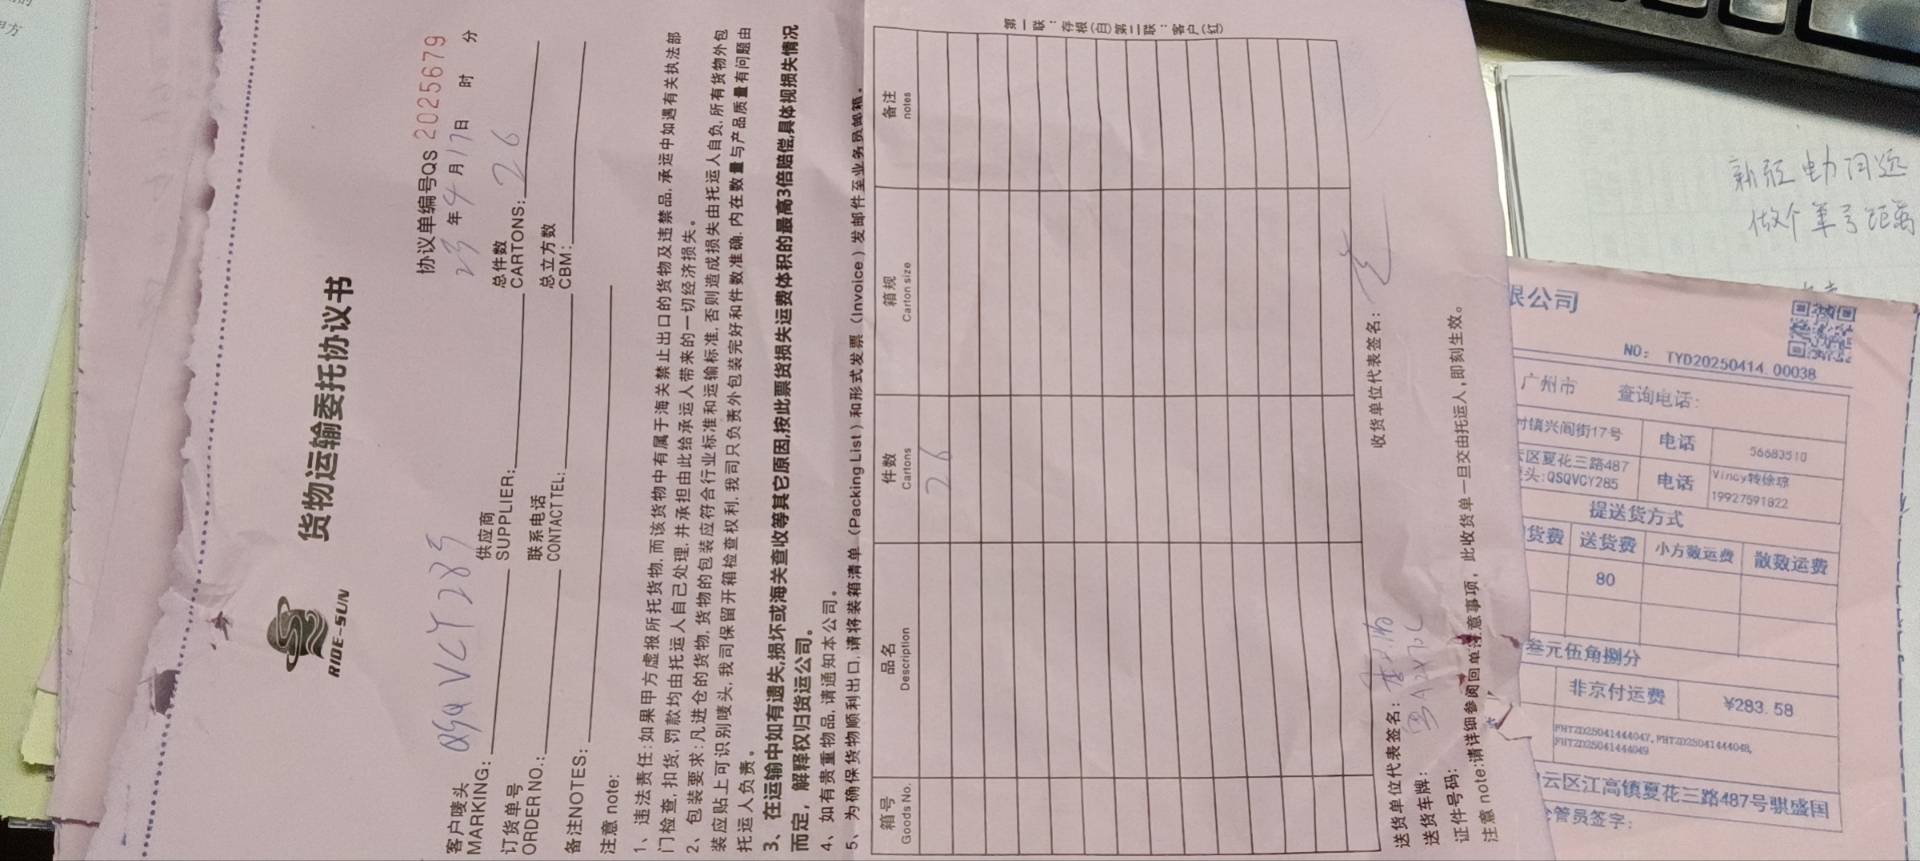 RIDE-SUN
货物运输委托协议书
协议单编号QS 2025679
23 年 4 月 17 日 时 分
客户唛头
MARKING: QSQVCY285
供应商
SUPPLIER:
总件数
CARTONS: 26
订货单号
ORDER NO.:
联系电话
CONTACT TEL:
总立方数
CBM:
备注NOTES:
注意 note:
1、违法责任:如果甲方虚报所托货物,而该货物中有属于海关禁止出口的货物及违禁品,承运中如遇有关执法部
门检查,扣货,罚款均由托运人自己处理,并承担由此给承运人带来的一切经济损失。
2、包装要求:凡进仓的货物,货物的包装应符合行业标准和运输标准,否则造成损失由托运人自负,所有货物外包
装应贴上可识别唛头,我司保留开箱检查权利,我司只负责外包装完好和件数准确,内在数量与产品质量有问题由
托运人负责。
3、在运输中如有遗失,损坏或海关查收等其它原因,按此票货损失运费体积的最高3倍赔偿,具体视损失情况
而定，解释权归货运公司。
4、如有贵重物品,请通知本公司。
5、为确保货物顺利出口,请将装箱清单（Packing List）和形式发票（Invoice）发邮件至业务员邮箱。
箱号 品名 件数 箱规 备注
Goods No. Description Cartons Carton size notes
26
第一联：存根(白)第二联：客户(红)
送货单位代表签名:
收货单位代表签名:
送货车牌:
证件号码:
注意 note:请详细参阅回单注意事项，此收货单一旦交由托运人,即刻生效。
限公司
NO: TYD20250414.00038
广州市 查询电话:
村镇兴阁街17号 电话 56683510
云区夏花三路487
头:QSQVCY285 电话 Vincy转徐琼
19927591822
提送货方式
货费 送货费 小方数运费 散数运费
80
叁元伍角捌分
非京付运费 ¥283.58
FHTZD25041444047,FHTZD25041444048,
FHTZD25041444049
云区江高镇夏花三路487号骐盛国
管员签字:
做个单号距离